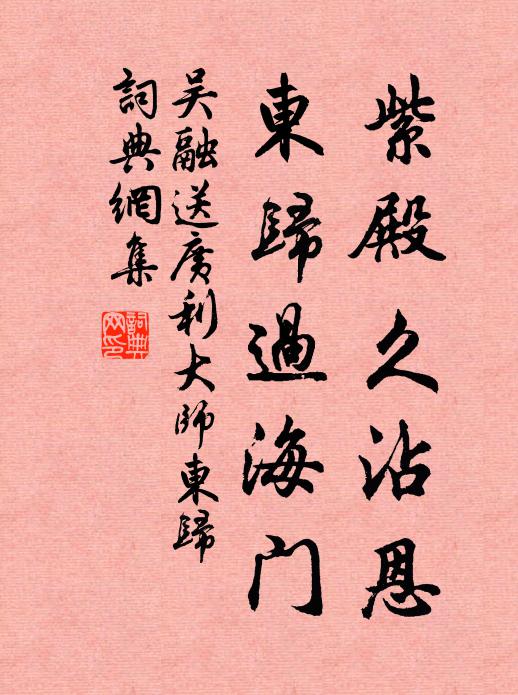 紫殿久沾恩
東歸過海門
吳融送廣利大師東歸
詞典網集
詞典網印